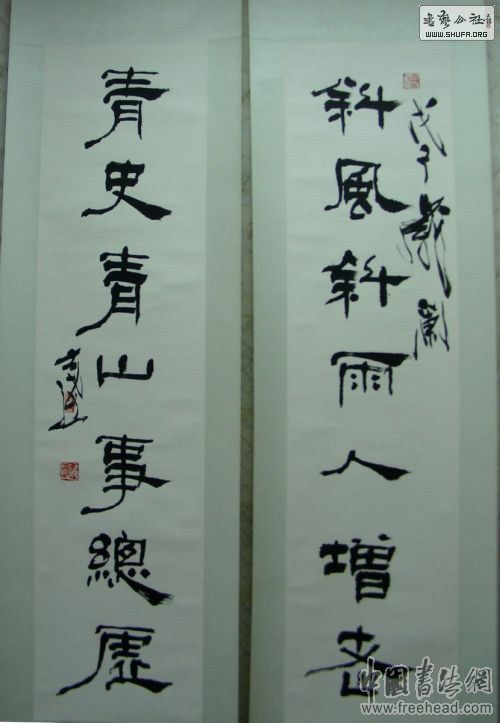 書藝公社
WWW.SHUFA.ORG
戊子歲
斜風斜雨人增老
青史青山事總虛
中國書法網
www.freehead.com